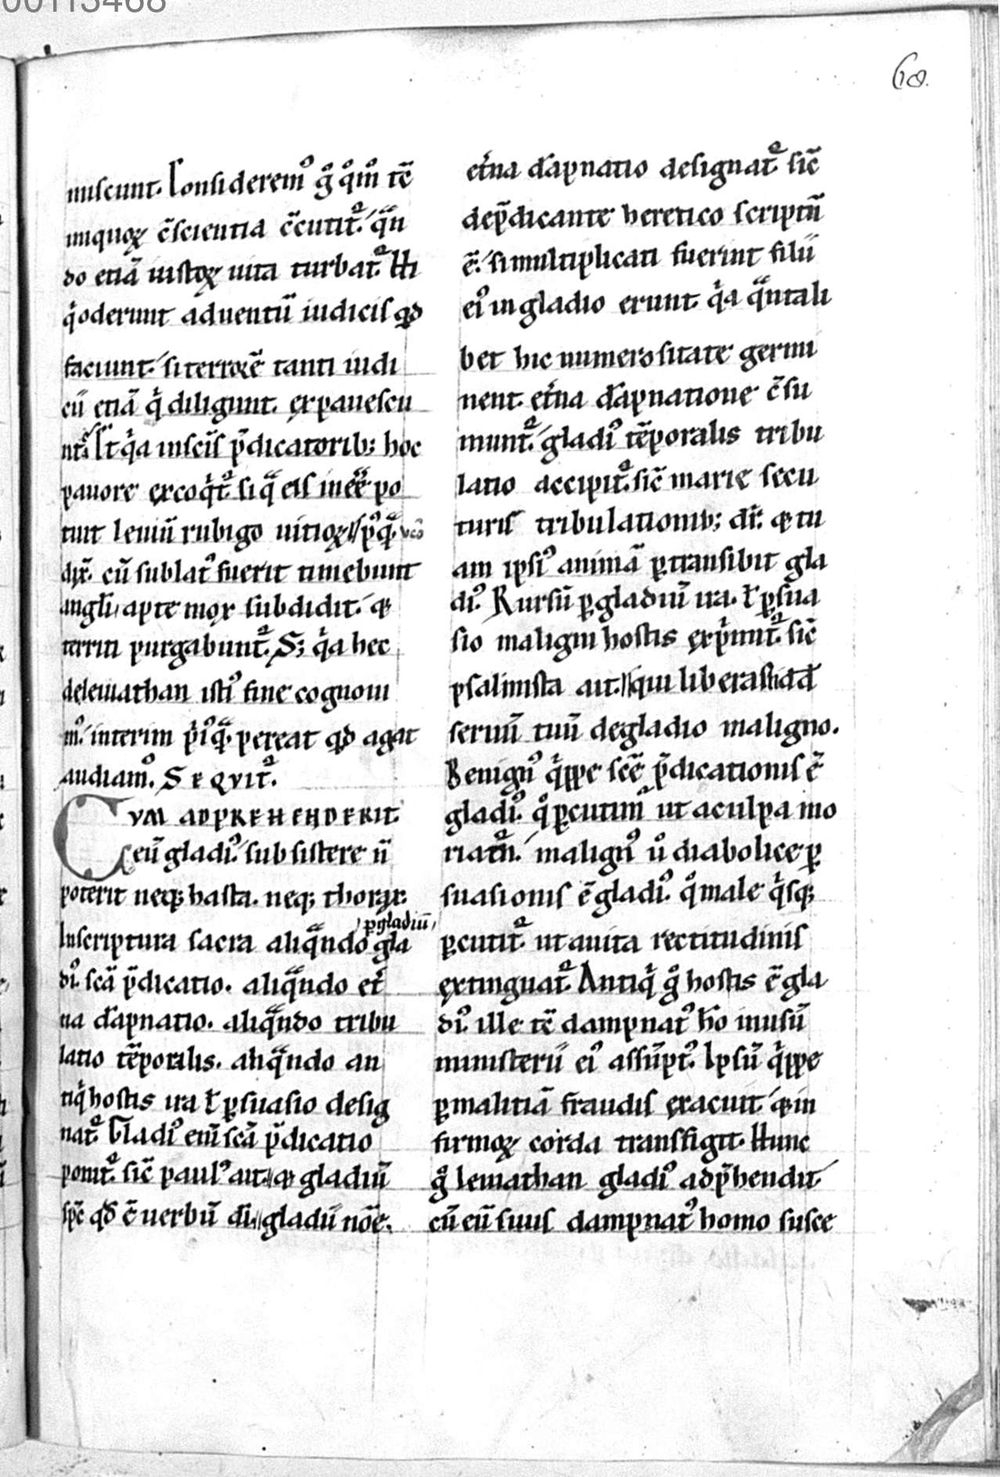 00113468
68.
niscunt. Considerem᷒ g̊ q̊m̊ tc̄
iniquoꝝ ꝯ̄scientia ꝯ̄cutit᷑. q̄n
do etiā iustoꝝ uita turbat᷑. Hi
q̓ oderunt aduentū iudicis qđ
faciunt. si terrorē tanti iudi
cū etiā q̓ diligunt. expauescu
nt᷑. Et q̓a in sc̄is p̄dicatorib; hoc
pauore excoq̓t᷑. si q̄ eis inēē po
tuit leuiū rubigo uitioꝝ. p᷒q̄
dix̄. cū sublat᷒ fuerit timebunt
angl̄i. apte mox subdidit. ⁊
territi purgabunt᷑. S; q̓a hec
de leuiathan isti᷒ fine cognoui
m᷒. interim p̓᷒q̄ pereat qđ agat
audiam᷒. SEQVIT᷑.
CVM ADPREHENDERIT
eū gladi᷒. subsistere ñ
poterit neq; hasta. neq; thorax.
ꝑ gladiū
In scriptura sacra aliq̄ndo gla
di᷒. sc̄a p̄dicatio. aliq̄ndo et̓
na dāpnatio. aliq̄ndo tribu
latio tēporalis. aliq̄ndo an
tiq̓ hostis ira ł ꝑsuasio desig
nat᷑. Gladi᷒ eni sc̄a p̄dicatio
ponit᷑. sic̄ paul᷒ ait. ⁊ gladiū
sp̄c qđ ē uerbū di. gladiū nōē.
et̓na dāpnatio designat᷑ sic̄
de p̄dicante heretico scriptū
ē. si multiplicati fuerint filii
ei᷒ in gladio erunt. q̓a q̄ntali
bet hic numerositate germi
nent. et̓na dāpnatione ꝯ̄su
munt᷑. gladi᷒ tēporalis tribu
latio accipit᷑. sic̄ marie secu
turis tribulationib; dr̄. ⁊ tu
am ipsi᷒ animā ꝑtransibit gla
di᷒. Rursū ꝑ gladiū ira. ł ꝑsua
sio maligni hostis exp̓mit᷑. sic̄
psalmista ait. qui liberasti dd̄
seruū tuū de gladio maligno.
Benign᷒ q̓ppe sc̄e p̄dicationis ē
gladi᷒. q̊ ꝑcutim᷑ ut a culpa mo
riam᷑. malign᷒ ů diabolice ꝑ
suasionis ē gladi᷒. q̊ male q̓sq;
ꝑcutit᷑. ut a uita rectitudinis
extinguat᷑. Antiq̓ g̊ hostis ē gla
di᷒. ille tc̄ dampnat᷒ hō in usū
ministerii ei᷒ assūpt᷒. Ipsū q̓ppe
ꝑ malitiā fraudis exacuit. ⁊ in
firmoꝝ corda transfigit. Hunc
g̊ leuiathan gladi᷒ adp̄hendit.
cū eū suus dampnat᷒ homo susce